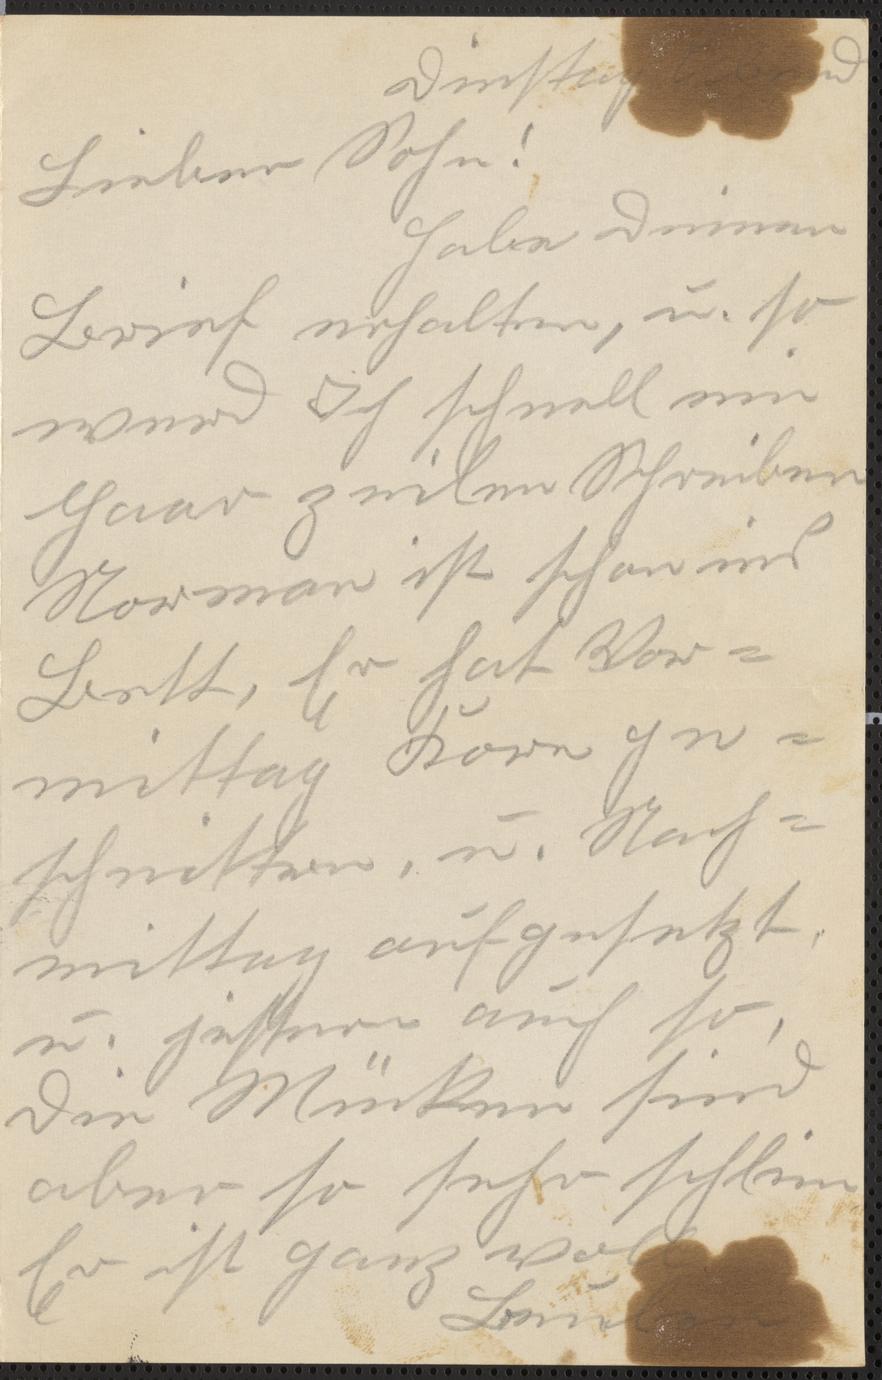 Dinstag Abend
Lieber Sohn!
Habe Deinen
Brief erhalten, u. so
werd Ich schnell ein
Paar zeilen Schreiben
Norman ist schon ins
Bett, Er hat Vor=
mittag Korn ge=
schnitten, u. Nach=
mittag aufgesetzt,
u. gestern auch so,
Die Mücken sind
aber so sehr schlim
Er ist ganz voll
Beulen